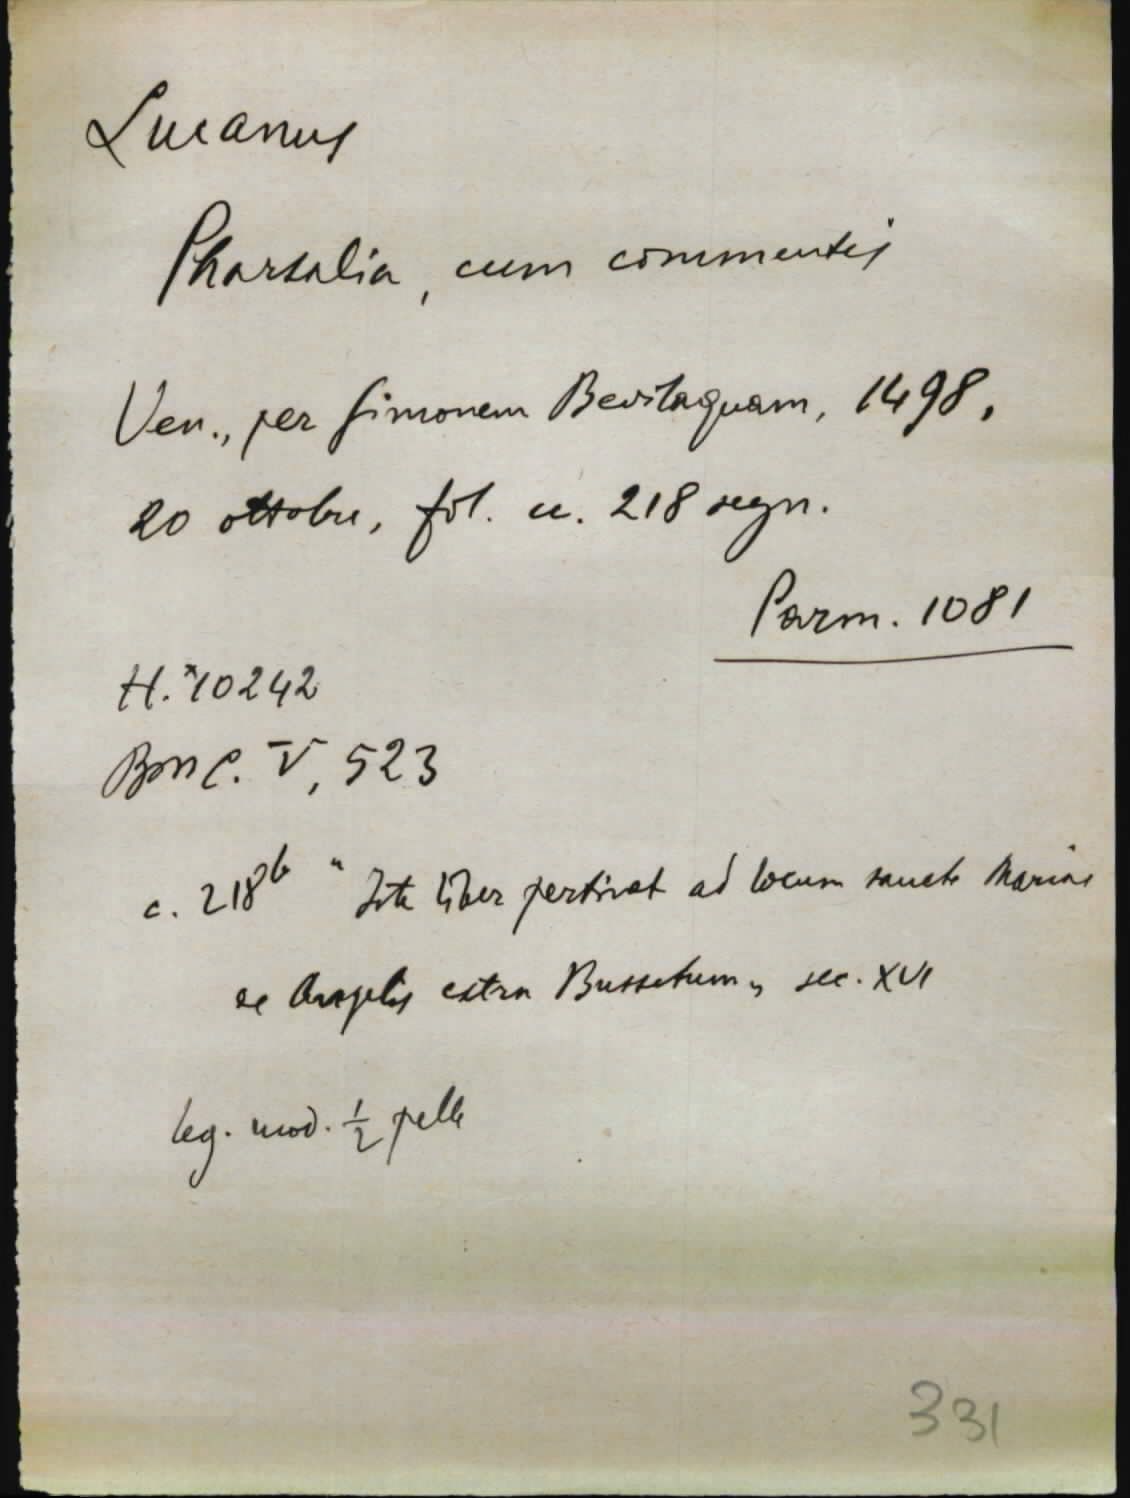 Lucanus
Pharsalia, cum commentis
Ven., per Simonem Bevilaquam, 1498,
20 ottobre, fol. cc. 218 segn.
Parm. 1081
H. *10242
BMC. V, 523
c. 218b "Iste liber pertinet ad locum sancte Marie
de Angelis extra Bussetum„ sec. XVI
leg. mod. ½ pelle
331